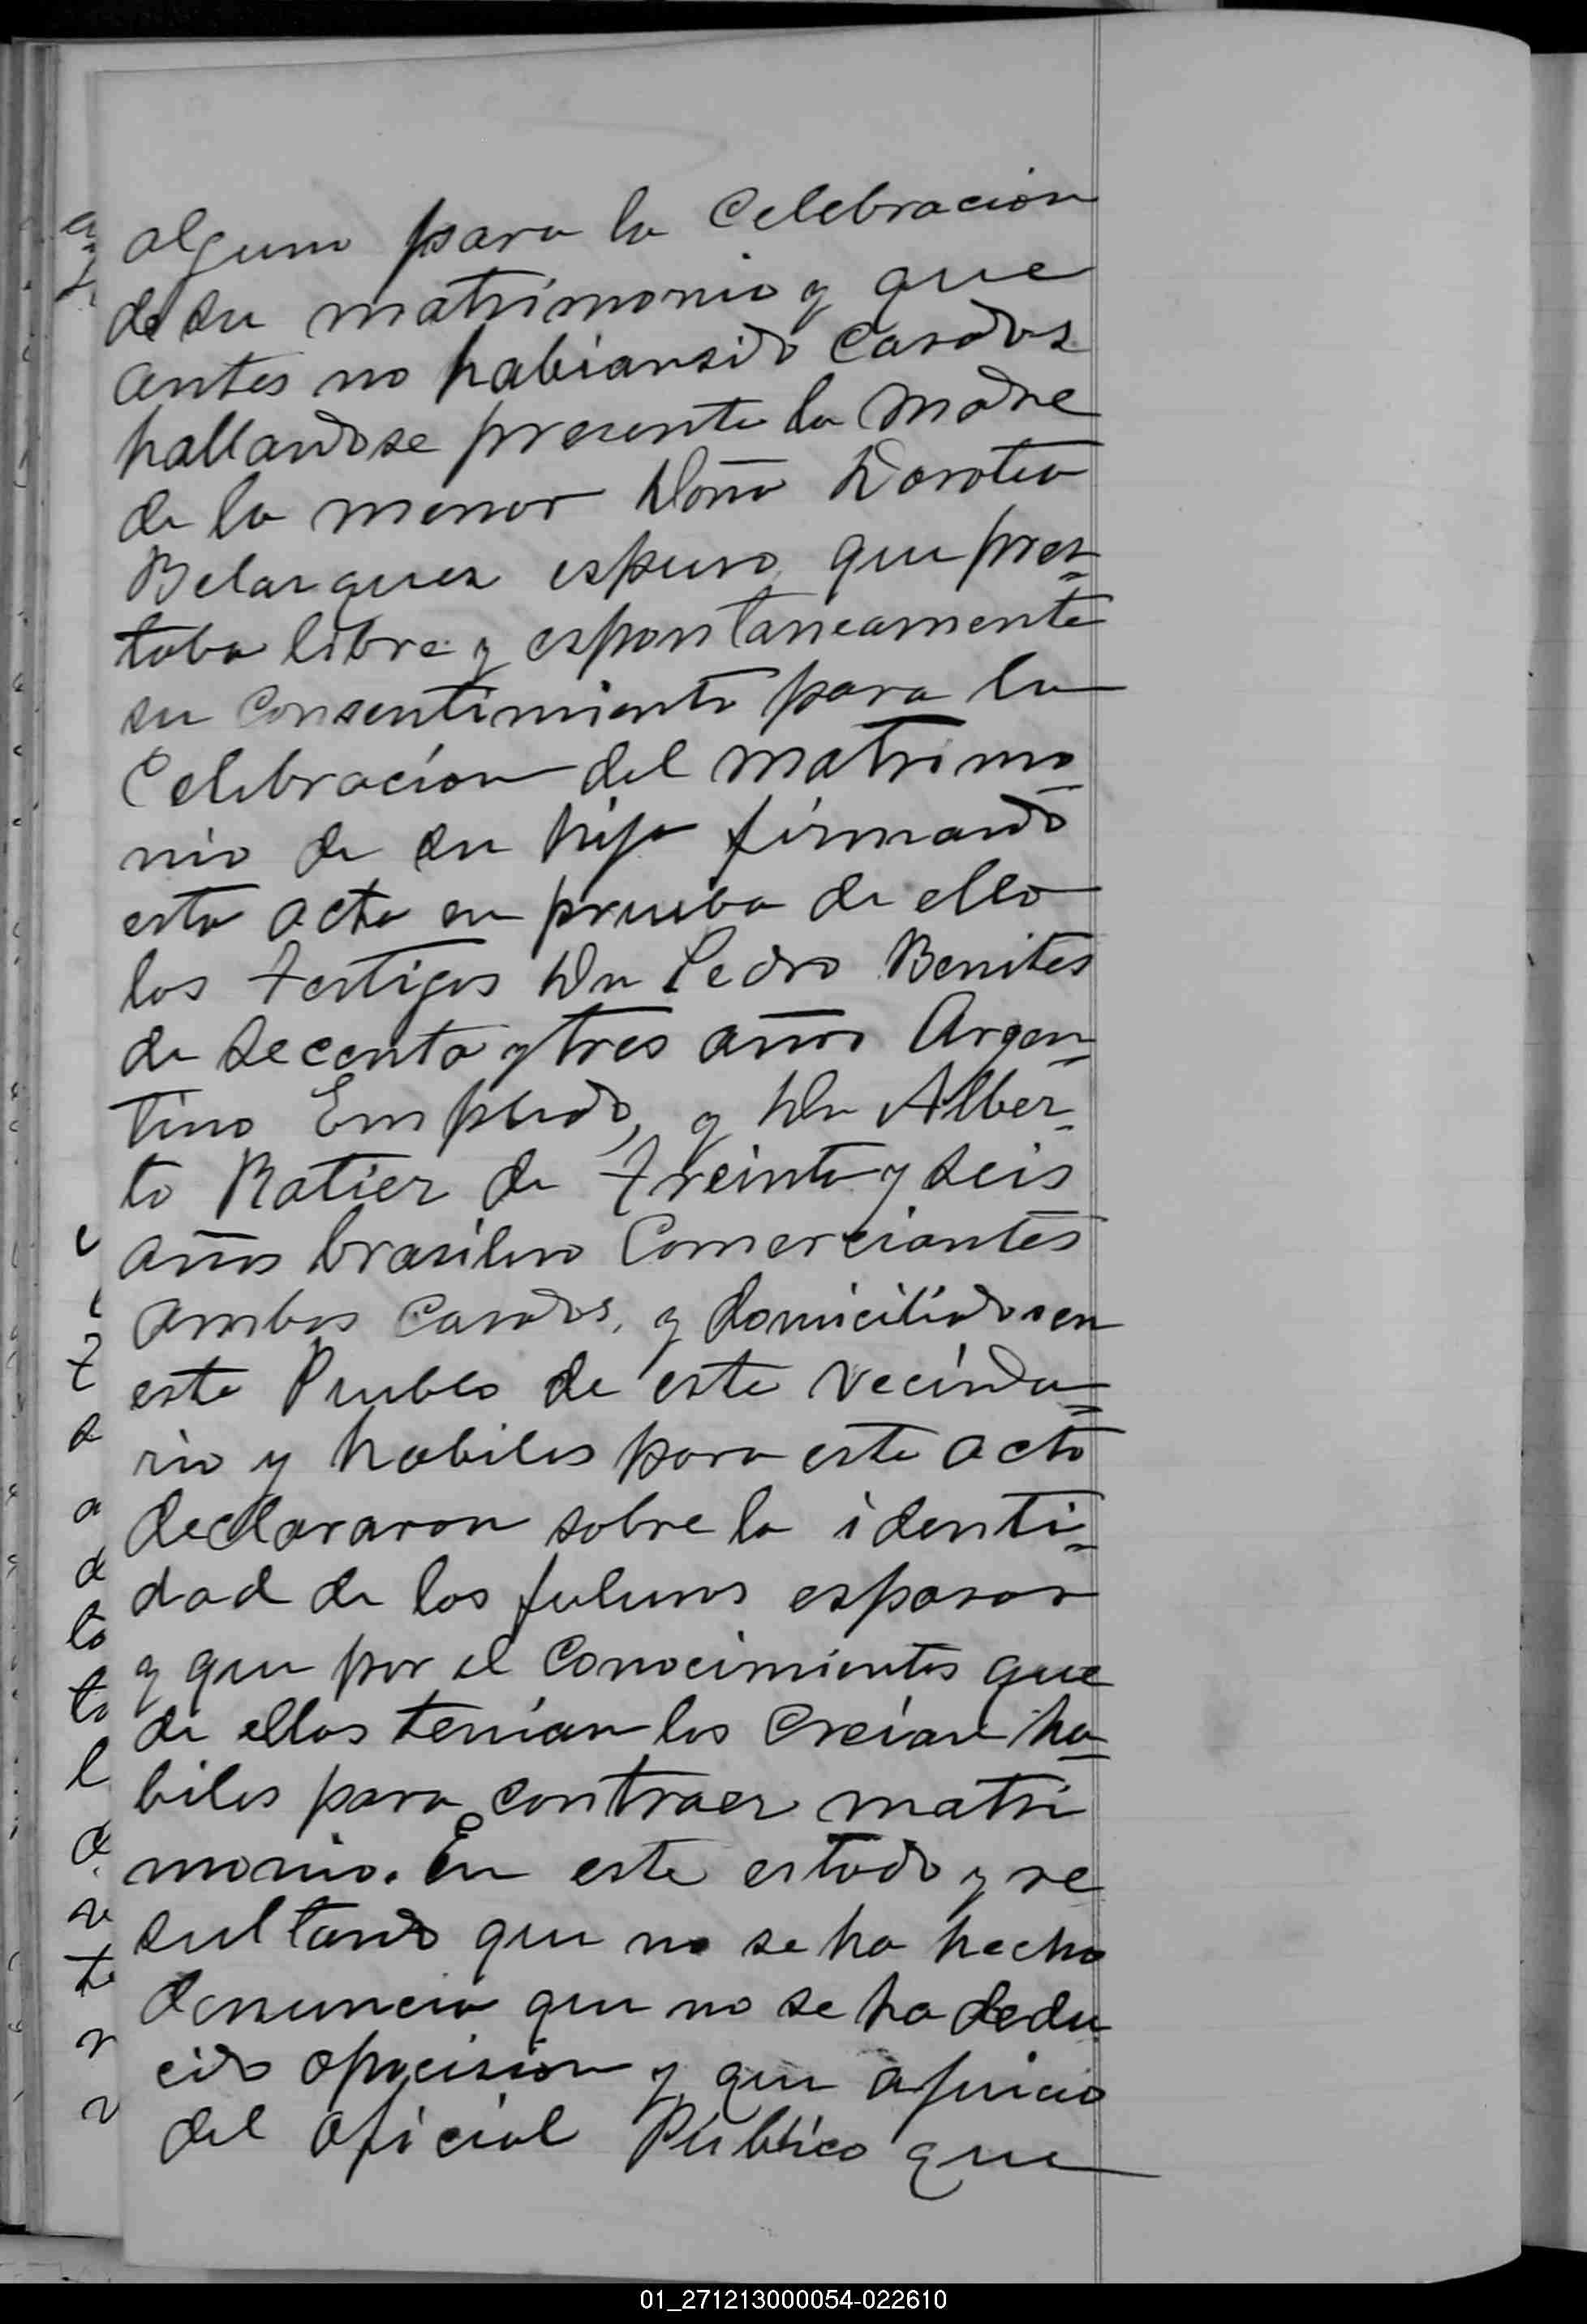 alguno para la Celebracion
de su matrimonio y que
antes no habian sido Casados
hallandose presente la madre
de la menor Doña Dorotea
Belasquez espuso que pres-
taba libre y espontaneamente
su Consentimiento para la
Celebracion del matrimo-
nio de su hija firmando
esta acta en prueba de ello
los testigos Dn Pedro Benites
de Secenta y tres años Argen-
tino Empleado, y Dn Alber-
to Ratier de treinta y seis
años brasilero Comerciantes
ambos Casados, y domiciliados en
este Pueblo de este vecinda-
rio y habiles para este acto
declararon sobre la identi-
dad de los futuros esposos
y que por el Conocimientos que
de ellos tenian los Creian ha-
biles para contraer matri
monio. En este estado y re
sultando que no se ha hecho
denuncia que no se ha dedu
cido oposision y que a juicio
del oficial Público que
01_271213000054-022610